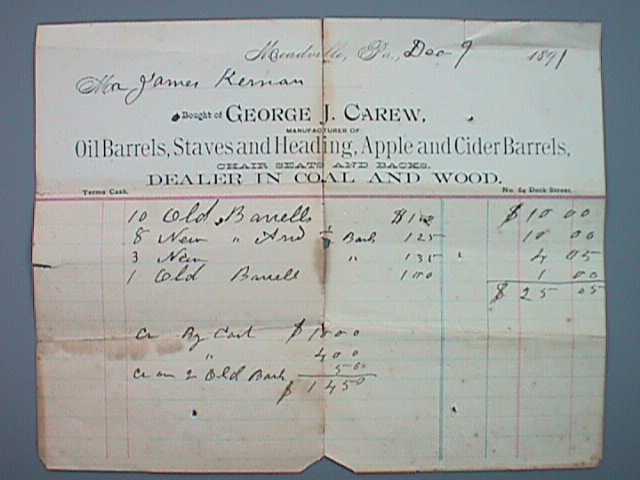 Meadville, Pa., Dec 9 1891
Mr James Kernan
Bought of GEORGE J. CAREW,
MANUFACTURER OF
Oil Barrels, Staves and Heading, Apple and Cider Barrels,
CHAIR SEATS AND BACKS.
DEALER IN COAL AND WOOD.
Terms Cash. No. 64 Dock Street.
10 Old Barrells $1 00 $10 00
8 New " And 1/2 Barls 1 25 10 00
3 New " 1 35 4 05
1 Old Barrell 1 00 1 00
$25 05
Cr By Cash $10 00
" 4 00
Cr on 2 Old Barls 50
$14 50